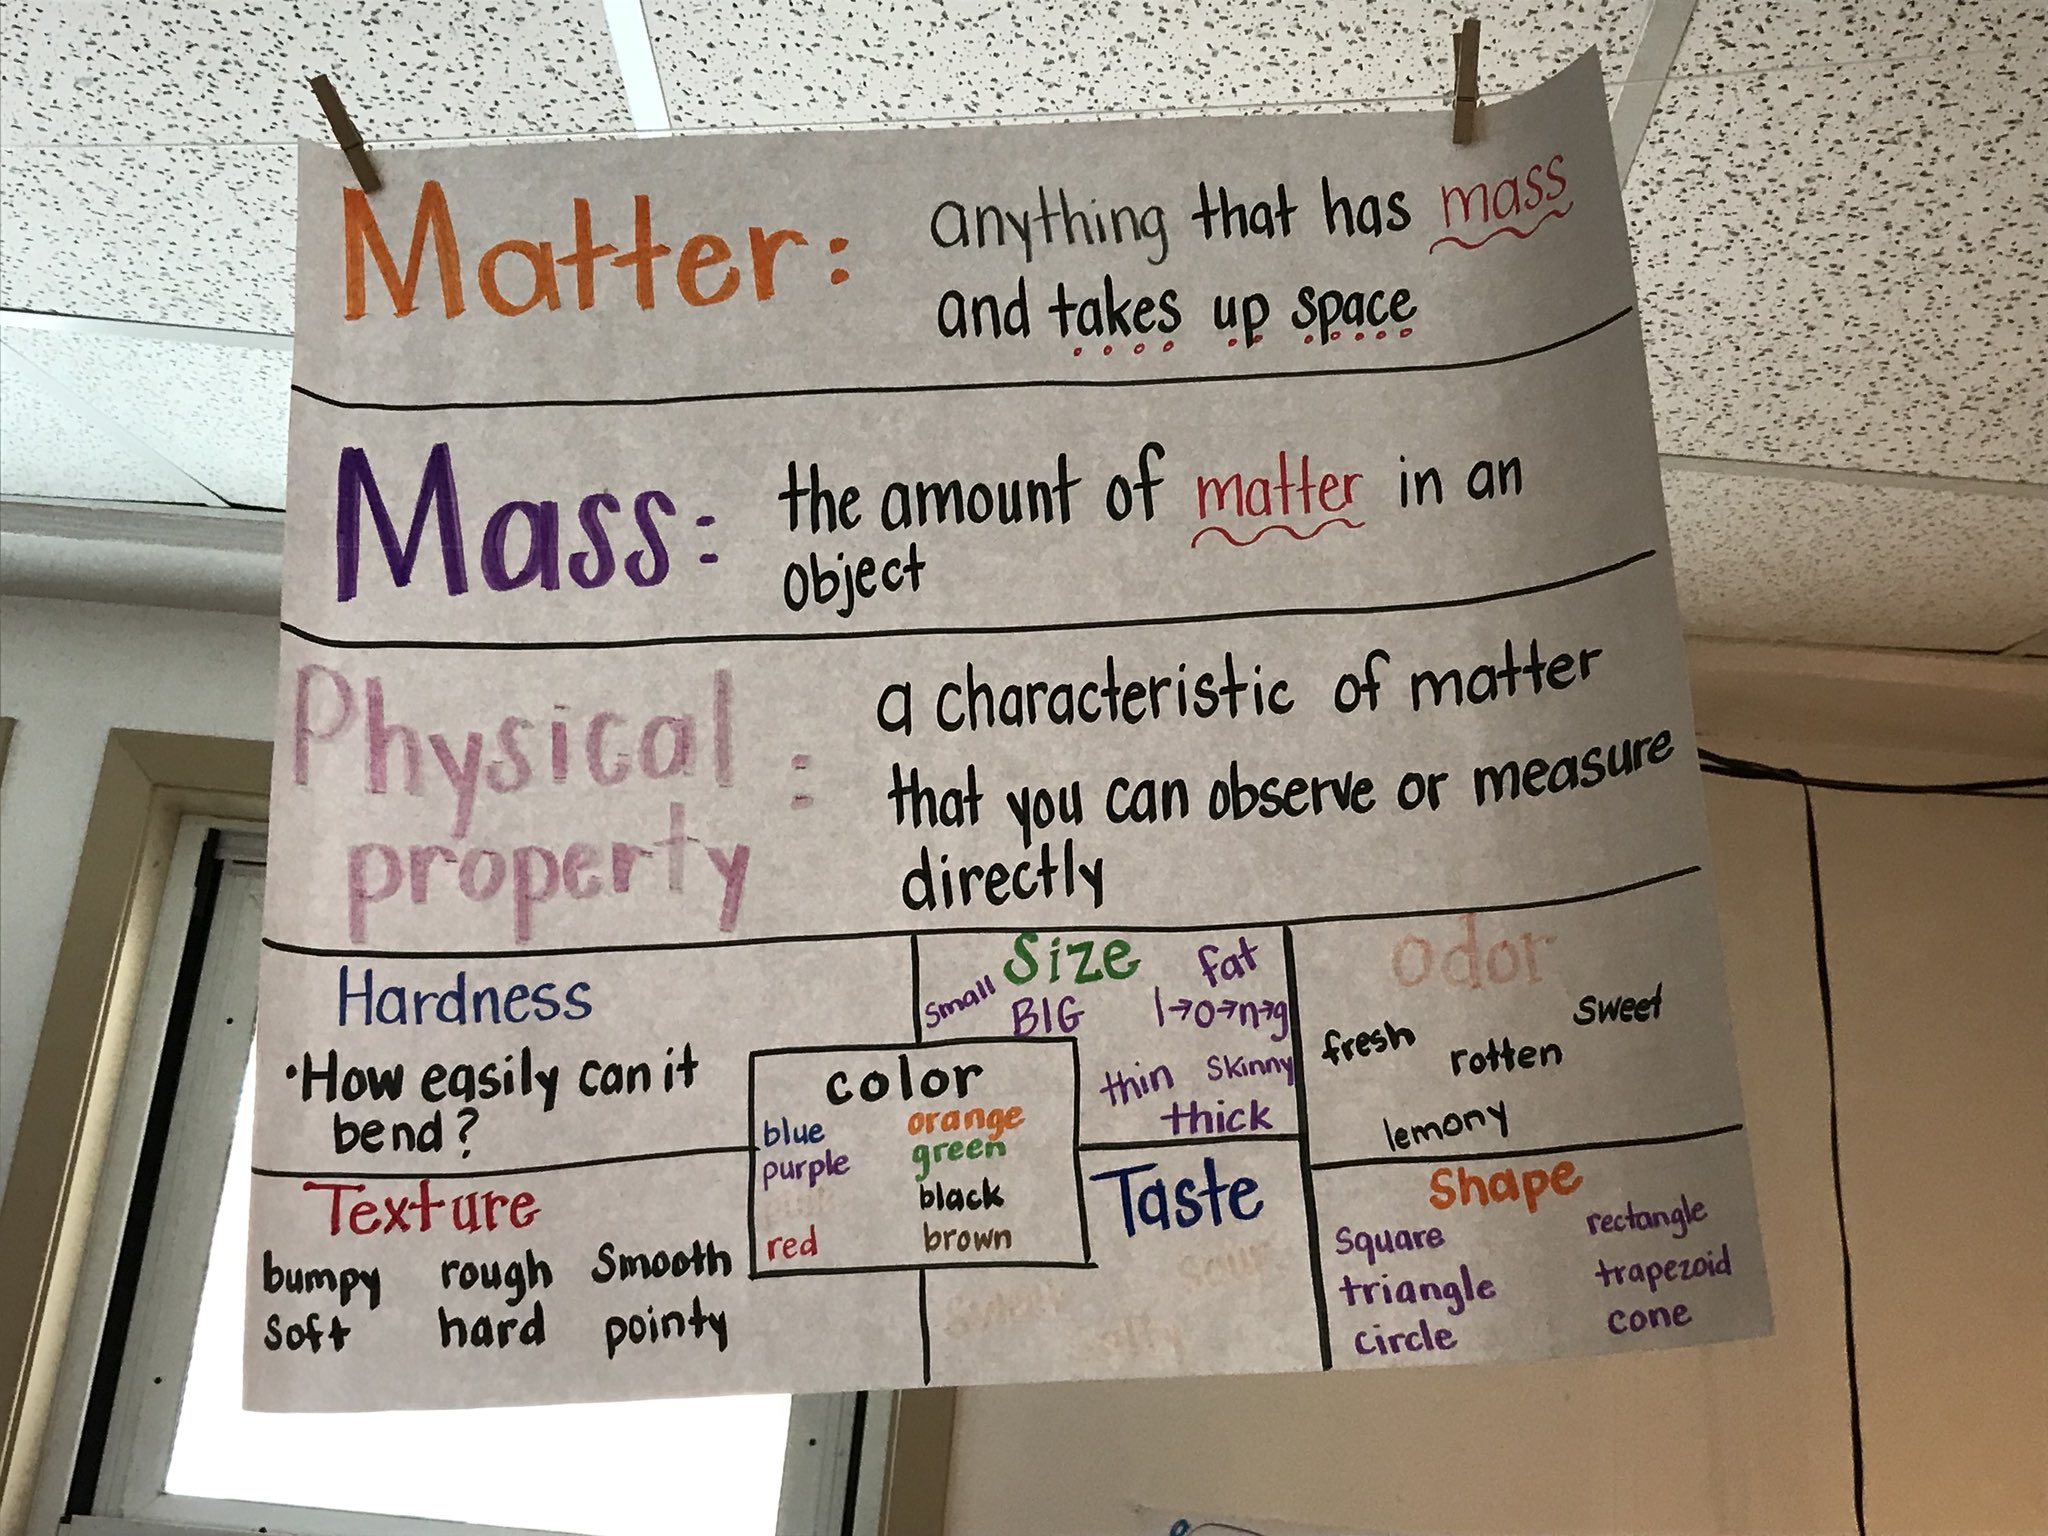 Matter: anything that has mass
and takes up space
Mass: the amount of matter in an
object
Physical property: a characteristic of matter
that you can observe or measure
directly
Hardness
•How easily can it
bend?
Size
small BIG fat
l→o→n→g
thin skinny
thick
Odor
fresh rotten sweet
lemony
color
blue orange
purple green
black
red brown
Texture
bumpy rough smooth
soft hard pointy
Taste
sour
salty
Shape
square rectangle
triangle trapezoid
circle cone